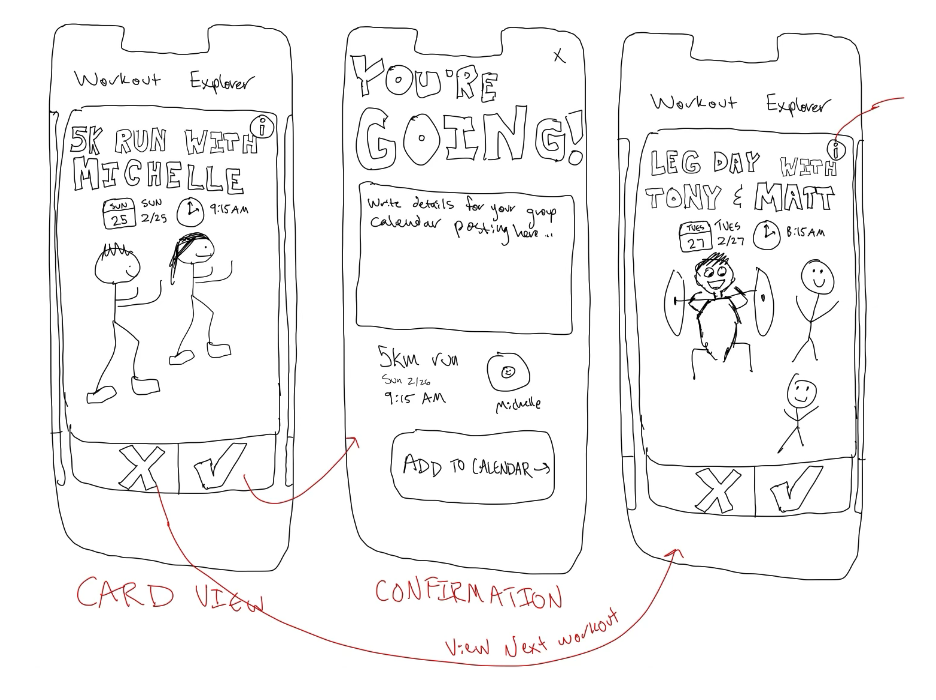 Workout Explorer
i
5K RUN WITH
MICHELLE
SUN
25
SUN
2/25
9:15 AM
CARD VIEW
X
YOU'RE
GOING!
Write details for your group
calendar posting here...
5km run
Sun 2/26
9:15 AM
Michelle
ADD TO CALENDAR →
CONFIRMATION
Workout Explorer
i
LEG DAY WITH
TONY & MATT
TUES
27
TUES
2/27
8:15 AM
View Next Workout